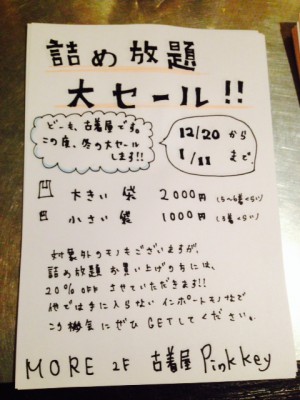 詰め放題
大セール!!
どーも、古着屋です。
この度、冬の大セール
します!!
12/20 から
1/11 まで。
大きい 袋 2000円 (5〜6着くらい)
小さい 袋 1000円 (3着くらい)
対象外のモノもございますが、
詰め放題 お買い上げの方には、
20% OFF させていただきます!!
他では手に入らない インポートモノなので
この機会にぜひ GETしてください。
MORE 2F 古着屋 Pinkkey